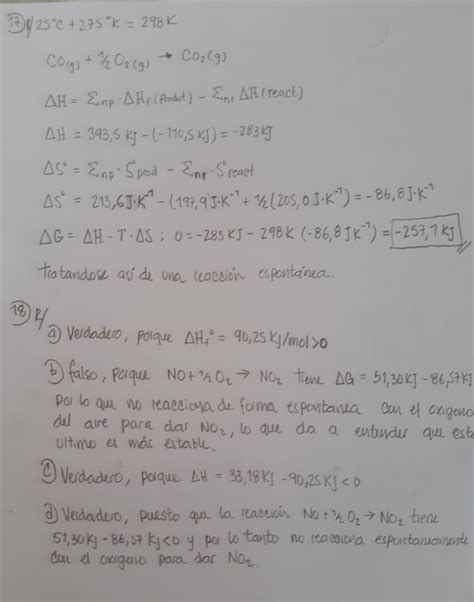 17) R/ 25°C + 275°K = 298K
CO(g) + 1/2 O2(g) → CO2(g)
ΔH = Σnp · ΔHf (Produt) - Σnr ΔH (react)
ΔH = 393,5 KJ - (-110,5 KJ) = -283 KJ
ΔS° = Σnp · S°prod - Σnr · S°react
ΔS° = 213,6 J·K⁻¹ - (197,9) J·K⁻¹ + 1/2 (205,0 J·K⁻¹) = -86,8 J·K⁻¹
ΔG = ΔH - T · ΔS ; 0 = -283 KJ - 298K (-86,8 J K⁻¹) = -257,1 KJ
Tratandose así de una reacción espontánea.
18) R/
a) Verdadero, porque ΔHf° = 90,25 KJ/mol > 0
b) falso, Porque NO + 1/2 O2 → NO2 tiene ΔG = 51,30 KJ - 86,57 KJ
Por lo que no reacciona de forma espontanea con el oxigeno
del aire para dar NO2, lo que da a entender que este
ultimo es más estable.
c) Verdadero, porque ΔH = 33,18 KJ - 90,25 KJ < 0
d) Verdadero, puesto que la reacción NO + 1/2 O2 → NO2 tiene
51,30 KJ - 86,57 KJ < 0 y por lo tanto no reacciona espontaneamente
con el oxigeno para dar NO2.